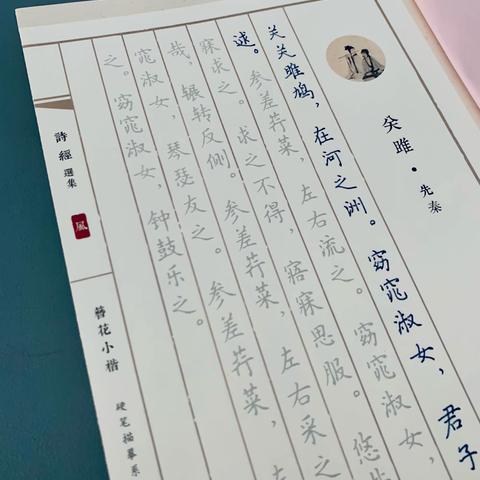 关雎·先秦
关关雎鸠，在河之洲。窈窕淑女，君子
逑。参差荇菜，左右流之。窈窕淑女，
寐求之。求之不得，寤寐思服。悠
哉，辗转反侧。参差荇菜，左右采之
窕淑女，琴瑟友之。参差荇菜，左
之。窈窕淑女，钟鼓乐之。
詩經選集
風
簪花小楷
硬笔描摹系